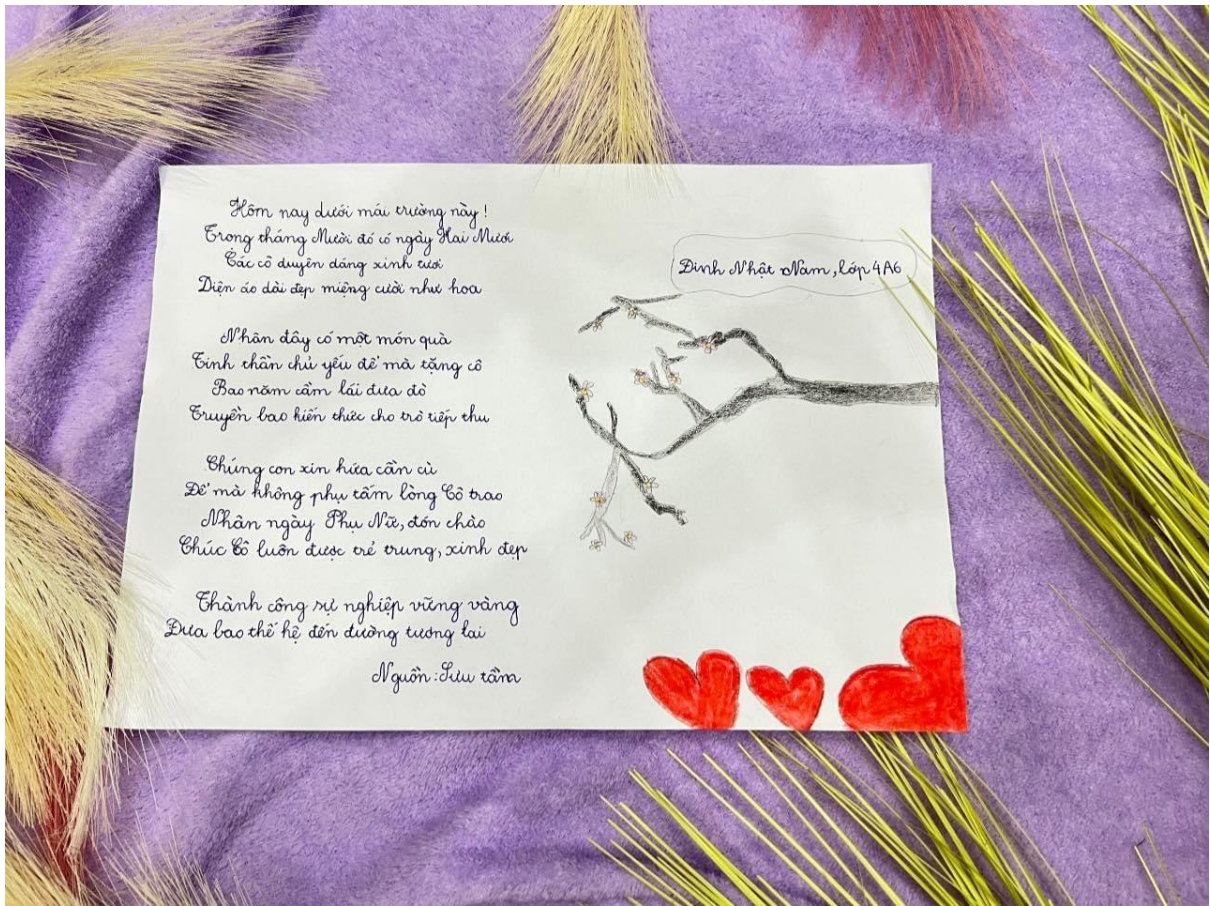 Hôm nay dưới mái trường này!
Trong tháng Mười đó có ngày Hai Mươi
Các cô duyên dáng xinh tươi
Diện áo dài đẹp miệng cười như hoa
Nhân đây có một món quà
Tinh thần chủ yếu để mà tặng cô
Bao năm cầm lái đưa đò
Truyền bao kiến thức cho trò tiếp thu
Chúng con xin hứa cần cù
Để mà không phụ tấm lòng Cô trao
Nhân ngày Phụ Nữ, đón chào
Chúc Cô luôn được trẻ trung, xinh đẹp
Thành công sự nghiệp vững vàng
Đưa bao thế hệ đến đường tương lai
Nguồn: Sưu tầm
Đinh Nhật Nam, lớp 4A6